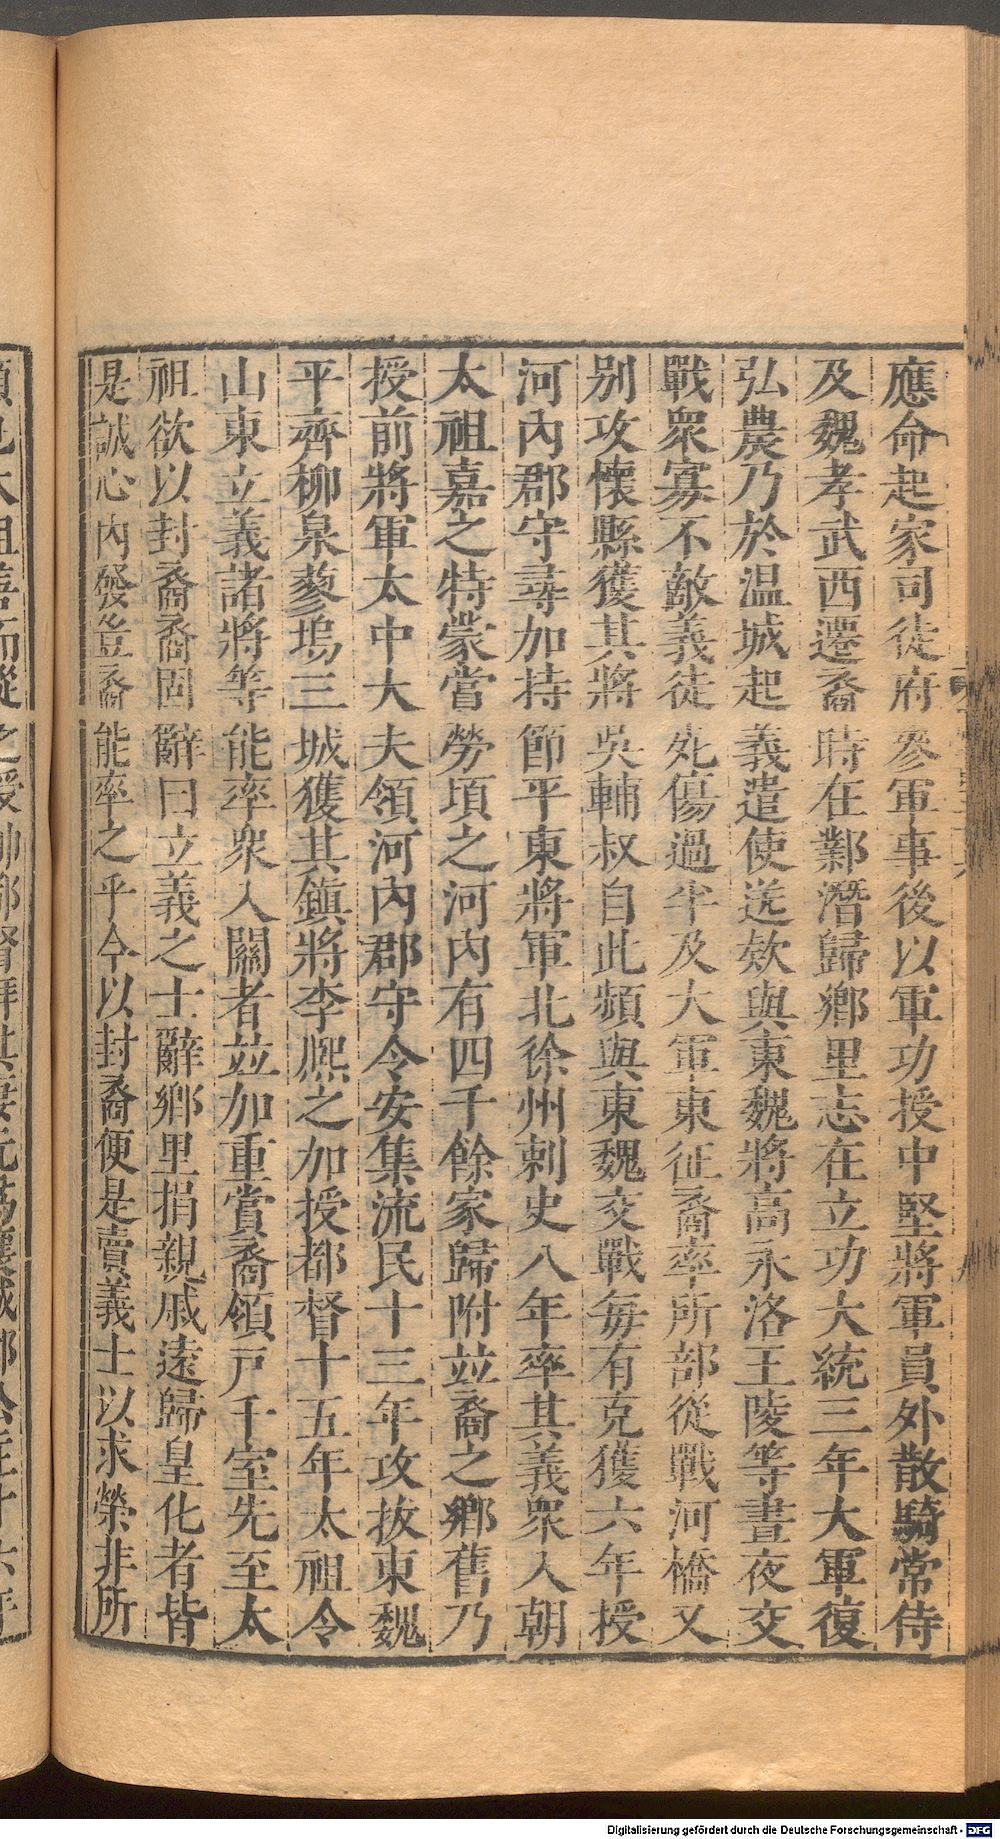 應命起家司徒府參軍事後以軍功授中堅將軍員外散騎常侍
及魏孝武西遷裔時在鄴潛歸鄉里志在立功大統三年大軍復
弘農乃於温城起義遣使送欵與東魏將高永洛王陵等晝夜交
戰衆寡不敵義徒死傷過半及大軍東征裔率所部從戰河橋又
别攻懷縣獲其將吳輔叔自此頻與東魏交戰每有克獲六年授
河內郡守尋加持節平東將軍北徐州刺史八年率其義衆入朝
太祖嘉之特蒙賞勞頃之河內有四千餘家歸附並裔之鄉舊乃
授前將軍太中大夫領河內郡守令安集流民十三年攻拔東魏
平齊柳泉蓼塢三城獲其鎮將李熙之加授都督十五年太祖令
山東立義諸將等能率衆入關者並加重賞裔領戸千室先至太
祖欲以封裔裔固辭曰立義之士辭鄉里捐親戚遠歸皇化者皆
是誠心內發豈裔能率之乎今以封裔便是賣義士以求榮非所
Digitalisierung gefördert durch die Deutsche Forschungsgemeinschaft - DFG